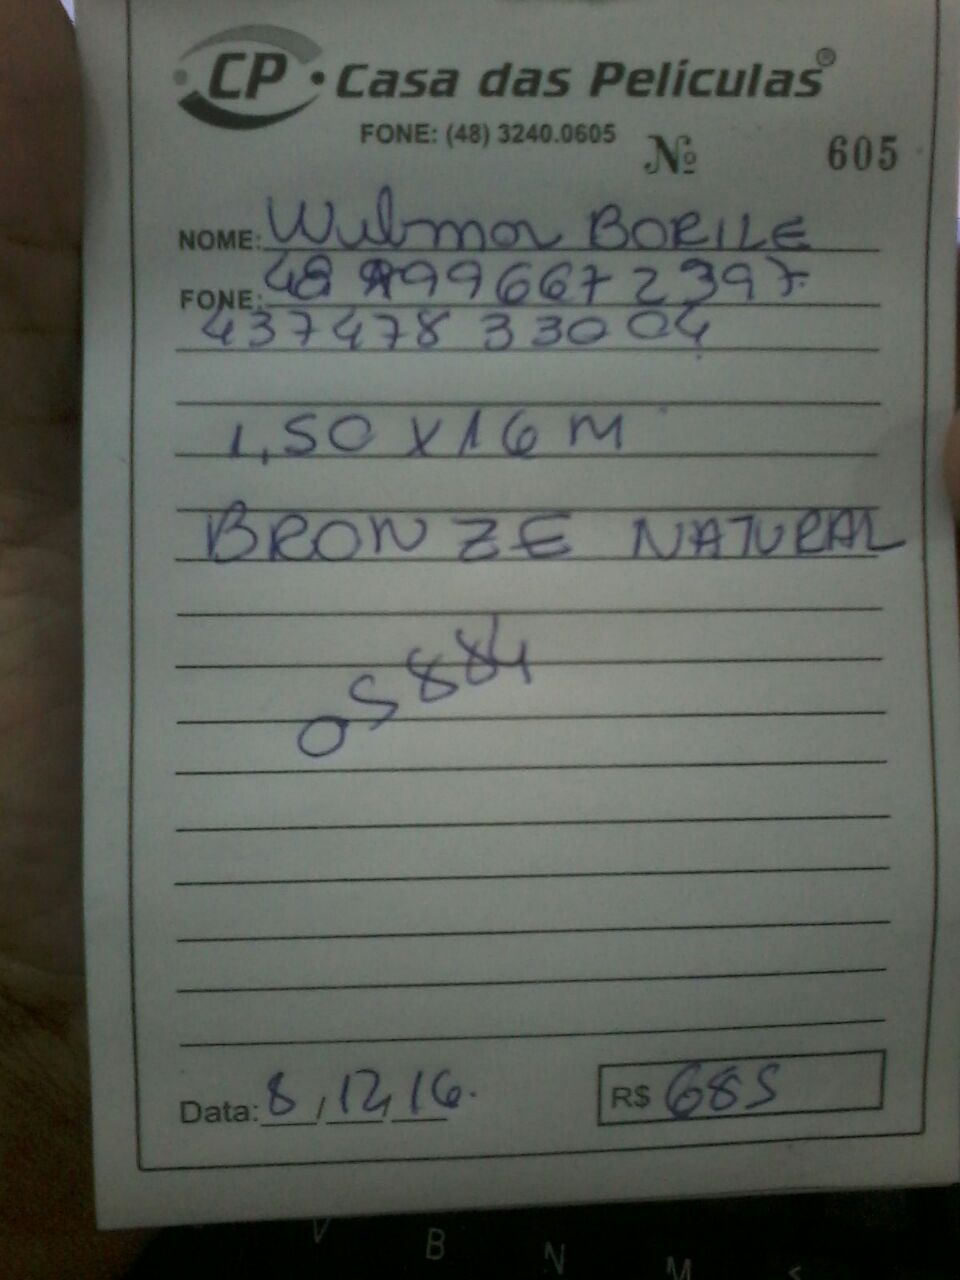 CP Casa das Películas®
FONE: (48) 3240.0605
Nº 605
NOME: Wilmor BORILE
FONE: 48 999667 2397
437478 33004
1,50 X 16 M
BRONZE NATURAL
05884
Data: 8/12/16. R$ 685
V B N M <